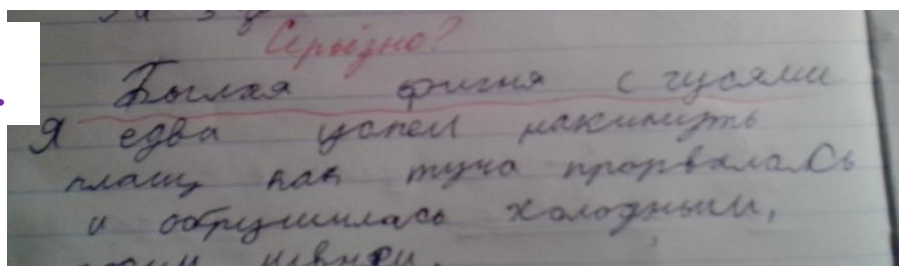 Серьёзно?
Былая фигня с гусями
Я едва успел накинуть
плащ, как туча прорвалась
и обрушилась холодным,